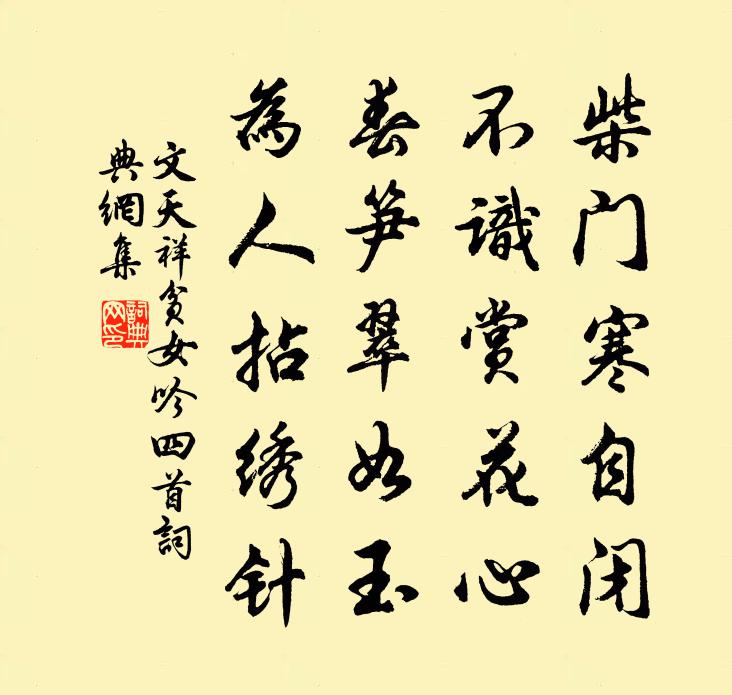 柴门寒自闭
不識賞花心
春笋翠如玉
為人拈绣针
文天祥贫女吟四首詞
典網集
詞典
网印